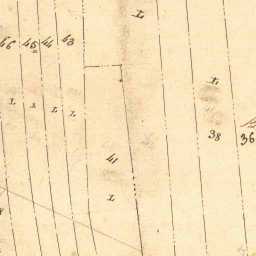 L
46 45 44 43
L
L L L L
38
36
41
L